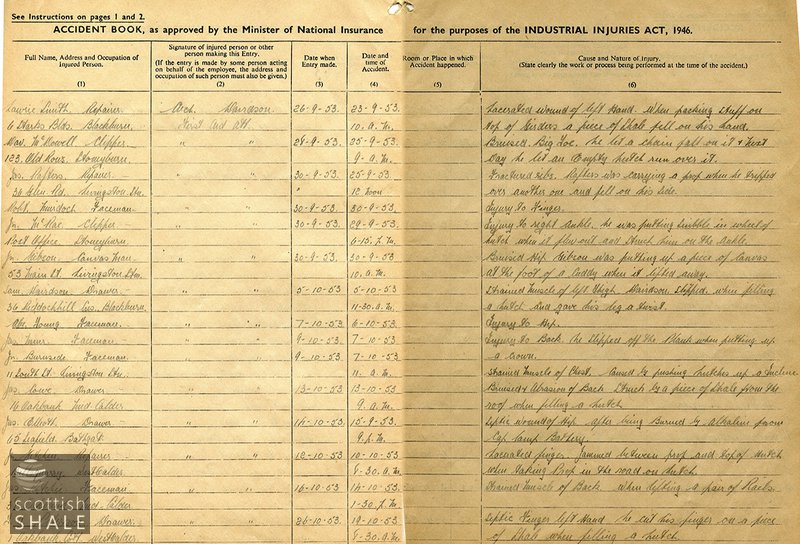 See Instructions on pages 1 and 2.
ACCIDENT BOOK, as approved by the Minister of National Insurance for the purposes of the INDUSTRIAL INJURIES ACT, 1946.
Full Name, Address and Occupation of Injured Person.
(1)
Signature of injured person or other person making this Entry.
(If the entry is made by some person acting on behalf of the employee, the address and occupation of such person must also be given.)
(2)
Date when Entry made.
(3)
Date and time of Accident.
(4)
Room or Place in which Accident happened.
(5)
Cause and Nature of Injury.
(State clearly the work or process being performed at the time of the accident.)
(6)
Smith Repairer Davidson 26-9-53 23-9-53 Lacerated wound of left Hand. When packing stuff on
Blackburn First Aid Att. 10. A.M. top of Girders a piece of Shale fell on his hand.
McDowell Clipper " " 28-9-53 25-9-53 Bruised Big Toe. He let a chain fall on it & next
123, Old Rows, Stoneyburn 9. A.M. day he let an Empty hutch run over it.
Repairer " " 30-9-53 25-9-53 Fractured ribs. was carrying a prop when he tripped
Livingston Stn. " 12 noon over another one and fell on his side.
Robt. Murdoch Faceman " " 30-9-53 30-9-53 Injury to Finger.
Jn. McRae Clipper " " 30-9-53 29-9-53 Injury to right Ankle. He was putting in wheel of
Post Office, Stoneyburn 6-15. P.M. hutch when it flew out and struck him on the Ankle.
Jn. Gibson Canvas Man " " 30-9-53 30-9-53 Bruised Hip. Gibson was putting up a piece of Canvas
53 Main St. Livingston Stn. 10. A.M. at the foot of a Cuddy when it away.
Sam. Davidson Drawer " " 5-10-53 5-10-53 Strained Muscle of left Thigh. Davidson slipped when filling
36 Riddochhill Blackburn 11-30. A.M. a hutch and gave his leg a twist.
Young Faceman " " 7-10-53 6-10-53 Injury to Hip.
Faceman " " 9-10-53 7-10-53 Injury to Back. He slipped off the Plank when putting up
Jn. Burnside Faceman " " 9-10-53 7-10-53 a Crown.
11 South St. Livingston Stn. 11. A.M. Strained Muscle of Chest. Caused by pushing hutches up a Incline
Jas. Drawer " " 13-10-53 13-10-53 Bruised & Abrasion of Back. Struck by a piece of Shale from the
16 Oakbank Mid Calder 9. A.M. roof when filling a hutch
Jas. Elliott Drawer " " 14-10-53 15-9-53 Septic wound of Hip after being Burned by Alkaline from
65 Leafield, Bathgate 9. P.M. Cap Lamp Battery.
Repairer " " 12-10-53 10-10-53 Lacerated finger. Jammed between prop and top of hutch
West Calder 8-30. A.M. when taking Prop in the road on hutch.
Faceman " " 16-10-53 14-10-53 Strained Muscle of Back when lifting a pair of Rails.
Calder 1-30. P.M.
Drawer " " 26-10-53 19-10-53 Septic Finger left Hand he cut his finger on a piece
Oakbank West Calder 8-30 A.M. of Shale when filling a hutch.
scottish
SHALE